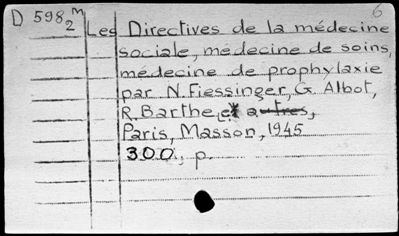 6
D 598 M
2
Les Directives de la médecine
sociale, médecine de soins,
médecine de prophylaxie
par N. Fiessinger, G. Albot,
R. Barthe et autres,
Paris, Masson, 1945
300. p.